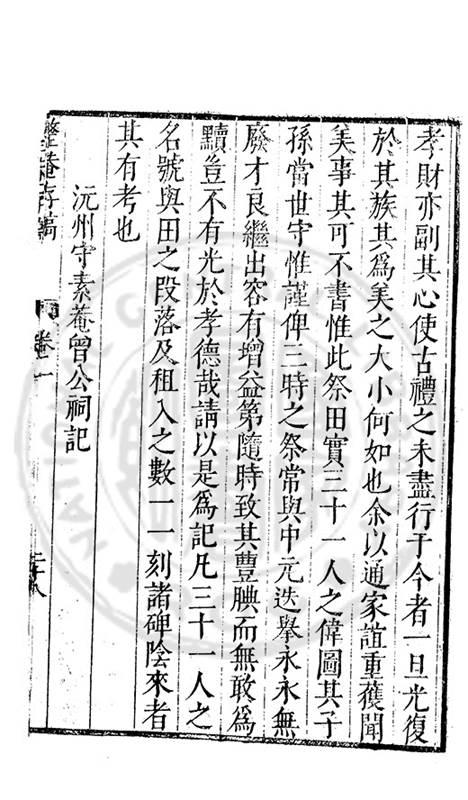 孝財亦副其心使古禮之未盡行于今者一旦光復
於其族其爲美之大小何如也余以通家誼重獲聞
美事其可不書惟此祭田實三十一人之偉圖其子
孫當世守惟謹俾三時之祭常與中元迭擧永永無
廢才良繼出容有增益第隨時致其豊腆而無敢爲
黷豈不有光於孝德哉請以是爲記凡三十一人之
名號與田之段落及租入之數一一刻諸碑陰來者
其有考也
沅州守素菴曾公祠記
整菴存稿
卷一